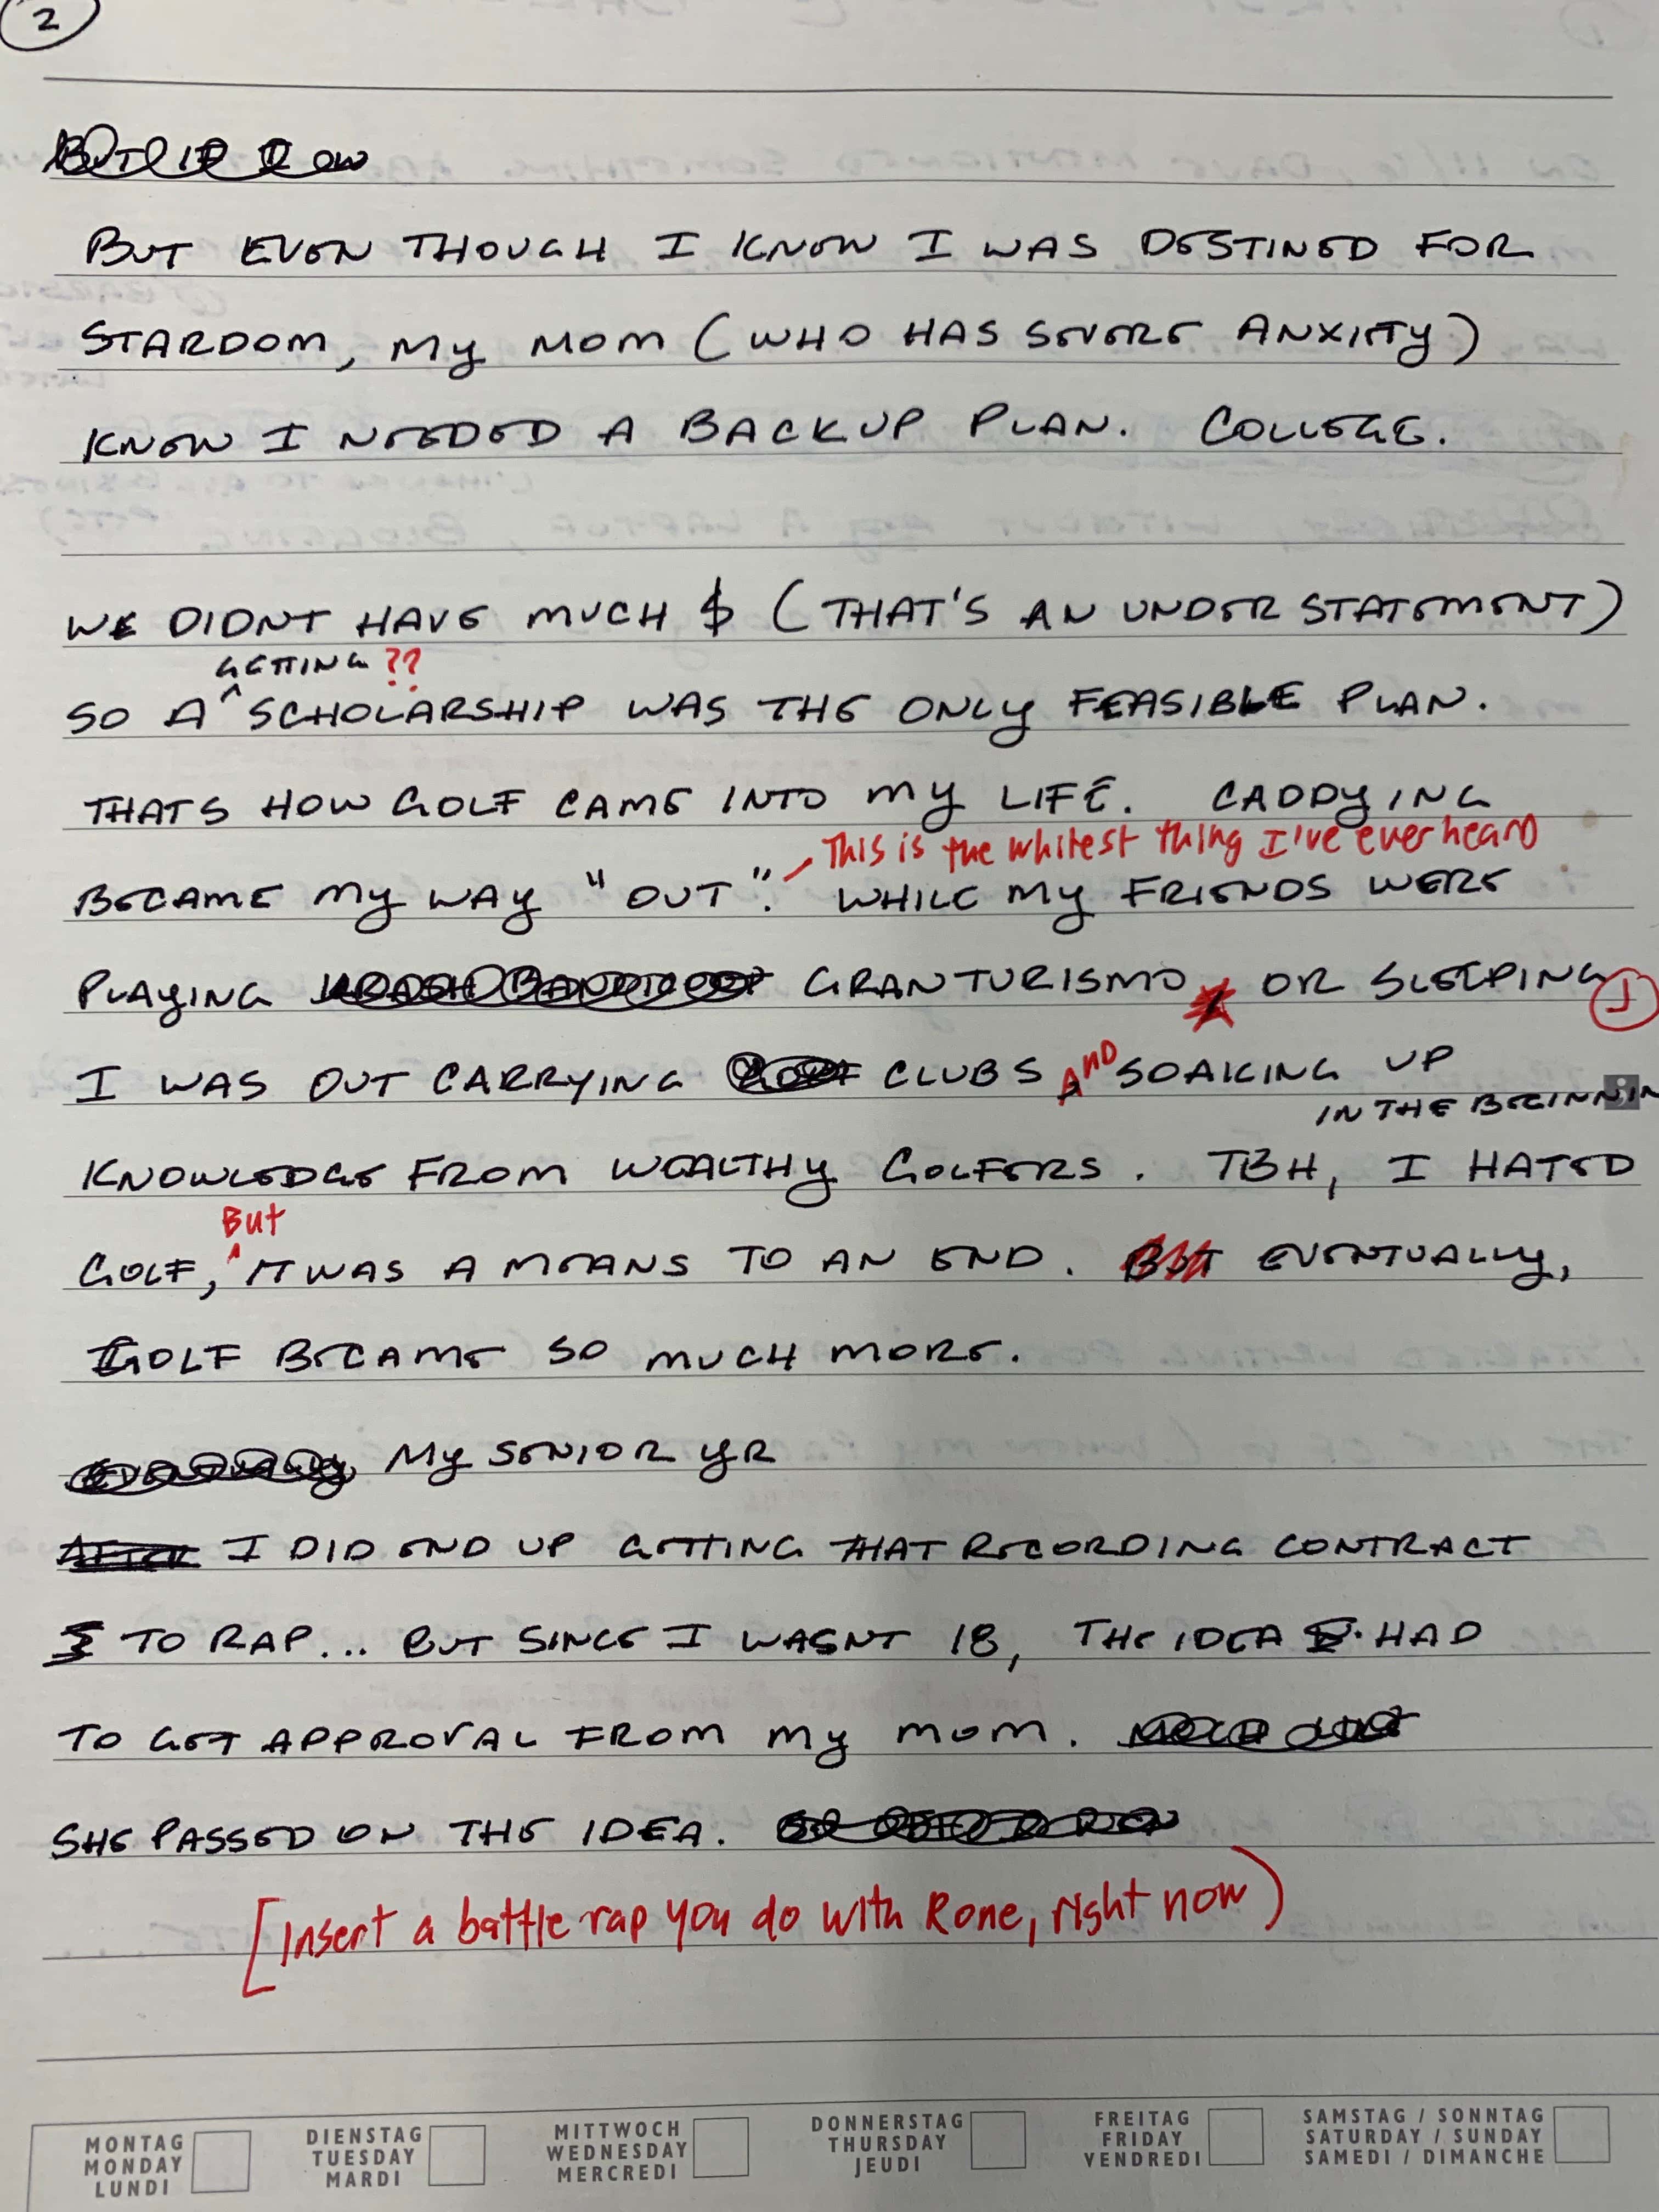 2
BUT EVEN THOUGH I KNEW I WAS DESTINED FOR
STARDOM, MY MOM (WHO HAS SEVERE ANXITY)
KNEW I NEEDED A BACKUP PLAN. COLLEGE.
WE DIDNT HAVE MUCH $ (THAT'S AN UNDERSTATEMENT)
GETTING ??
SO A ^ SCHOLARSHIP WAS THE ONLY FEASIBLE PLAN.
THATS HOW GOLF CAME INTO MY LIFE. CADDYING
This is the whitest thing I've ever heard
BECAME MY WAY "OUT". WHILE MY FRIENDS WERE
PLAYING KRASH BANDICOOT GRANTURISMO OR SLEEPING
I WAS OUT CARRYING GOLF CLUBS AND SOAKING UP
IN THE BEGINNIN
KNOWLEDGE FROM WEALTHY GOLFERS. TBH, I HATED
But
GOLF, ^ IT WAS A MEANS TO AN END. BUT EVENTUALLY,
GOLF BECAME SO MUCH MORE.
EVENTUALLY MY SENIOR YR
AFTER I DID END UP GETTING THAT RECORDING CONTRACT
TO RAP... BUT SINCE I WASNT 18, THE IDEA HAD
TO GET APPROVAL FROM MY MOM.
SHE PASSED ON THE IDEA.
[Insert a battle rap you do with Rone, right now)
MONTAG
MONDAY
LUNDI
DIENSTAG
TUESDAY
MARDI
MITTWOCH
WEDNESDAY
MERCREDI
DONNERSTAG
THURSDAY
JEUDI
FREITAG
FRIDAY
VENDREDI
SAMSTAG / SONNTAG
SATURDAY / SUNDAY
SAMEDI / DIMANCHE